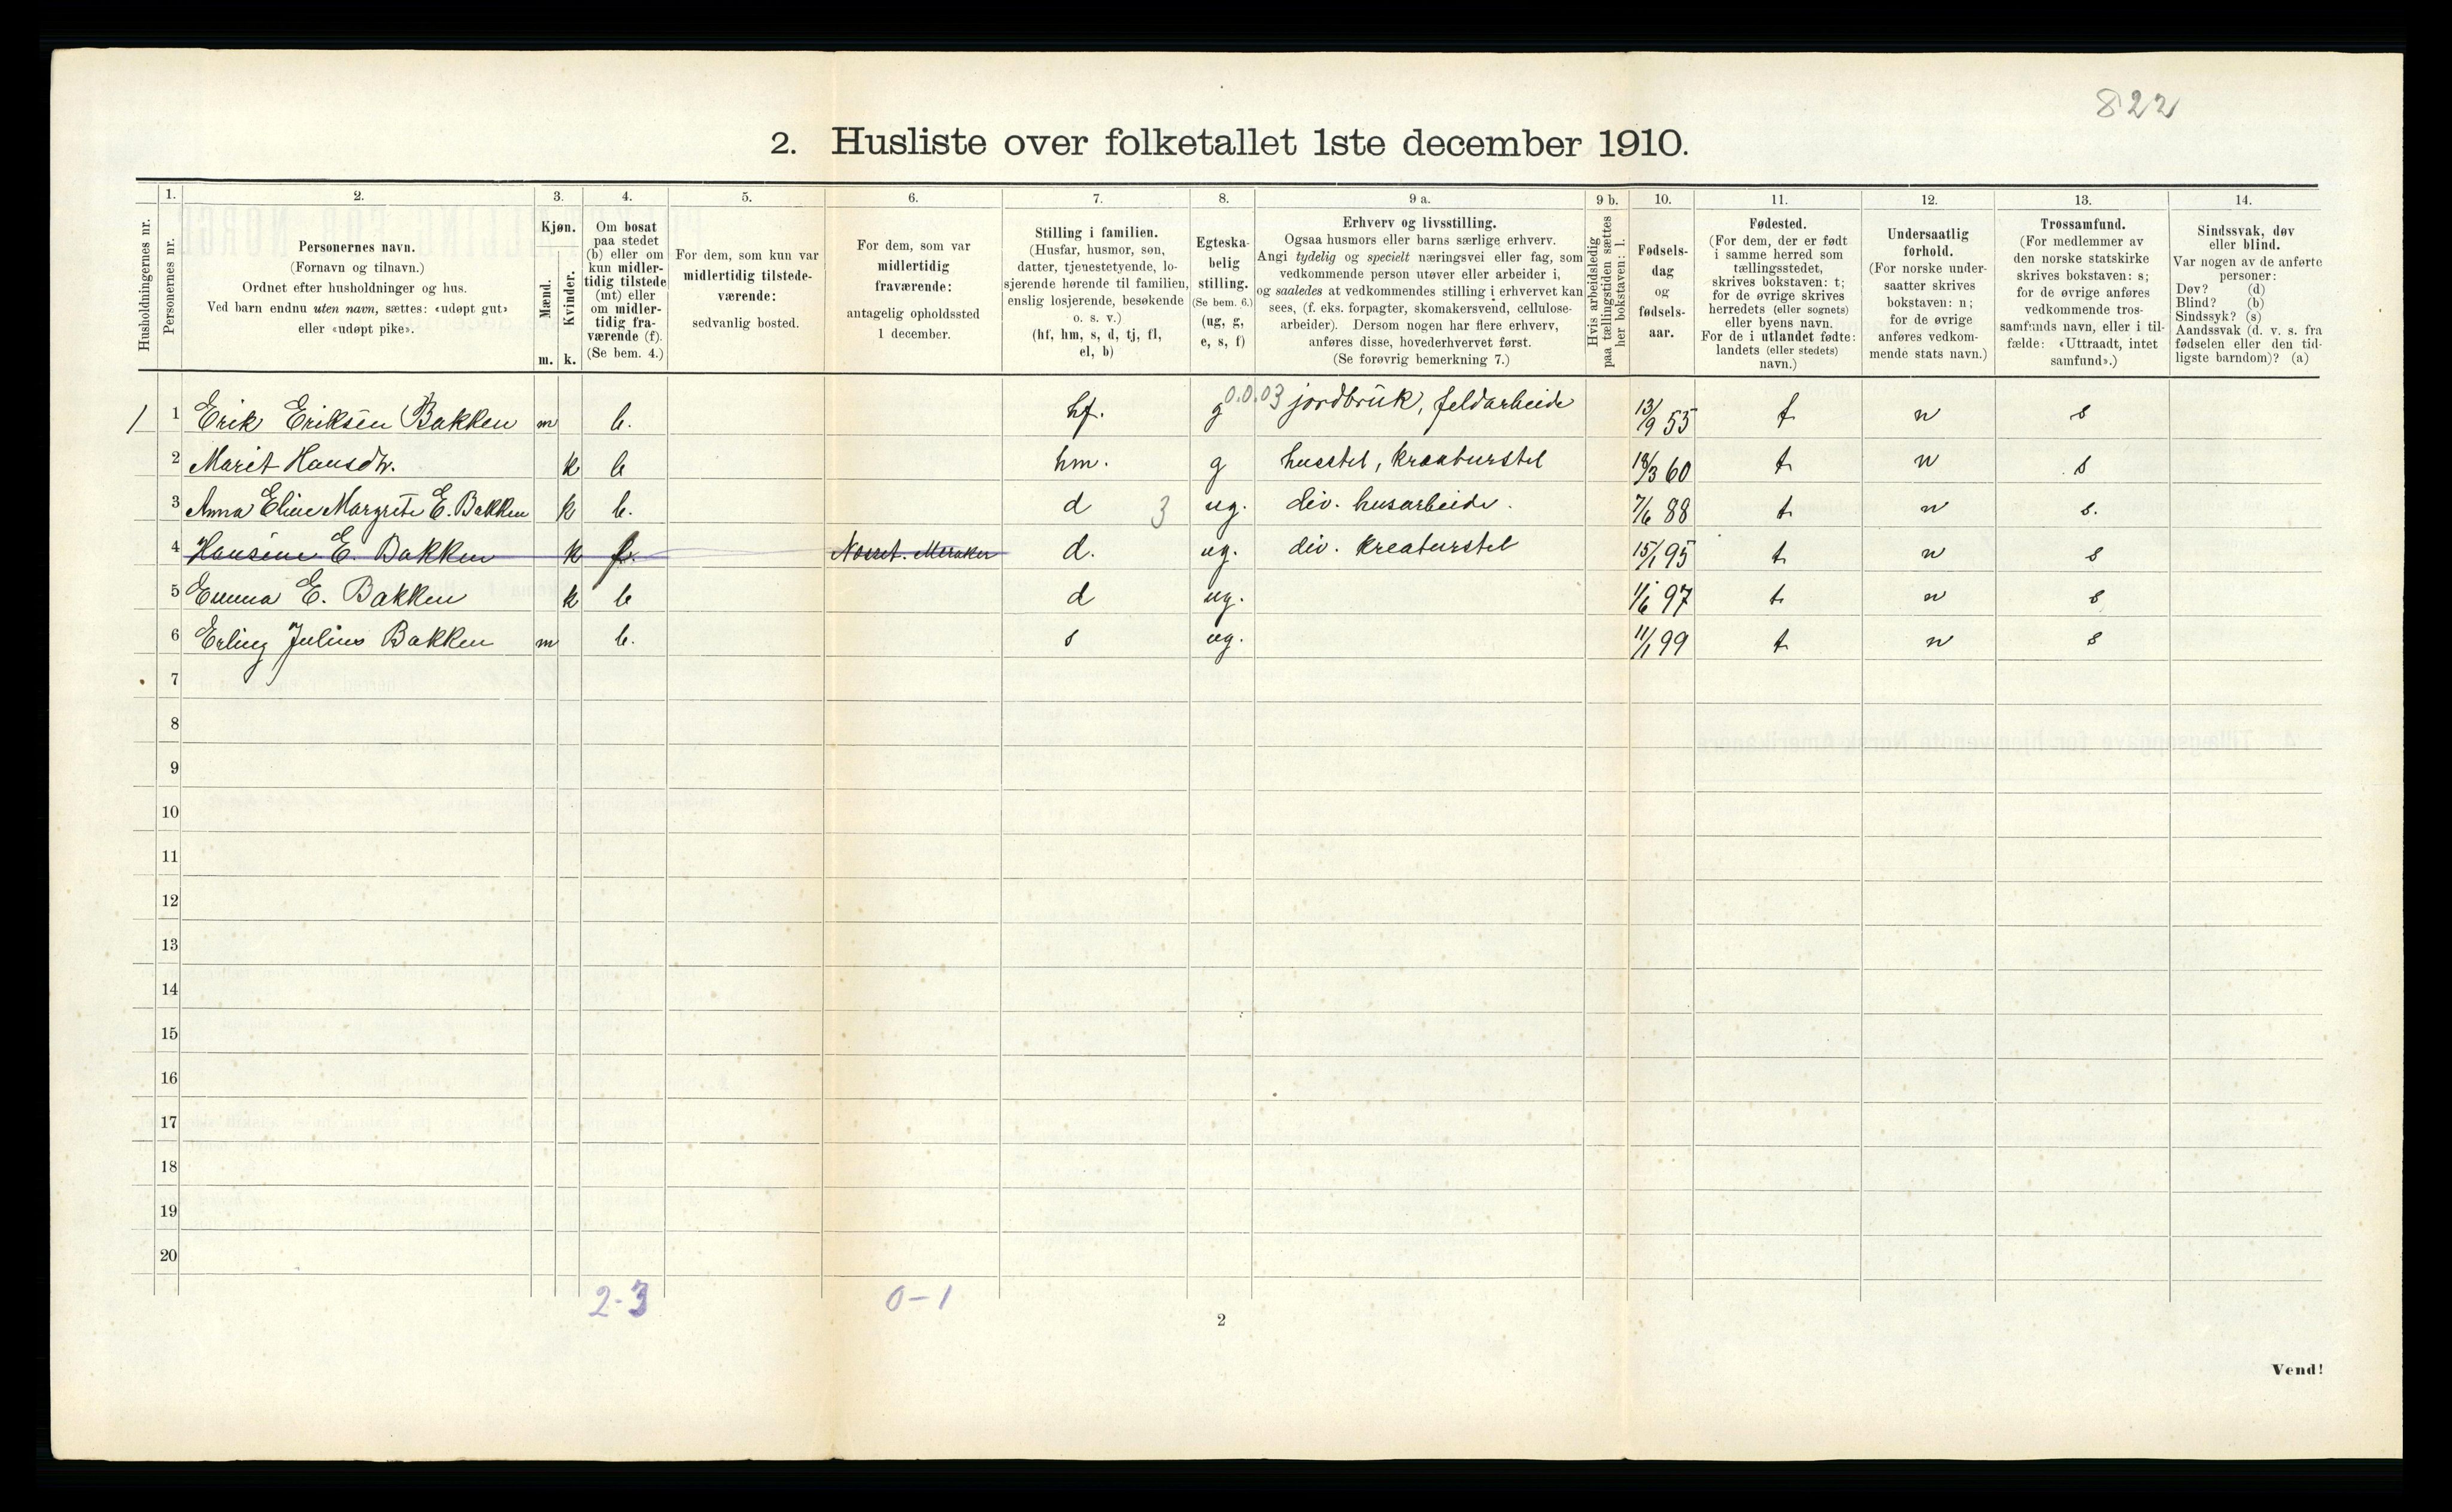 822
2. Husliste over folketallet 1ste december 1910.
Husholdningernes nr.
1.
Personernes nr.
2.
Personernes navn.
(Fornavn og tilnavn.)
Ordnet efter husholdninger og hus.
Ved barn endnu uten navn, sættes: «udøpt gut»
eller «udøpt pike».
3.
Kjøn.
Mænd.
Kvinder.
m. k.
4.
Om bosat
paa stedet
(b) eller om
kun midler-
tidig tilstede
(mt) eller
om midler-
tidig fra-
værende (f).
(Se bem. 4.)
5.
For dem, som kun var
midlertidig tilstede-
værende:
sedvanlig bosted.
6.
For dem, som var
midlertidig
fraværende:
antagelig opholdssted
1 december.
7.
Stilling i familien.
(Husfar, husmor, søn,
datter, tjenestetyende, lo-
sjerende hørende til familien,
enslig losjerende, besøkende
o. s. v.)
(hf, hm, s, d, tj, fl,
el, b)
8.
Egteska-
belig
stilling.
(Se bem. 6.)
(ug, g,
e, s, f)
9 a.
Erhverv og livsstilling.
Ogsaa husmors eller barns særlige erhverv.
Angi tydelig og specielt næringsvei eller fag, som
vedkommende person utøver eller arbeider i,
og saaledes at vedkommendes stilling i erhvervet kan
sees, (f. eks. forpagter, skomakersvend, cellulose-
arbeider). Dersom nogen har flere erhverv,
anføres disse, hovederhvervet først.
(Se forøvrig bemerkning 7.)
9 b.
Hvis arbeidsledig
paa tællingstiden sættes
her bokstaven: l.
10.
Fødsels-
dag
og
fødsels-
aar.
11.
Fødested.
(For dem, der er født
i samme herred som
tællingsstedet,
skrives bokstaven: t;
for de øvrige skrives
herredets (eller sognets)
eller byens navn.
For de i utlandet fødte:
landets (eller stedets)
navn.)
12.
Undersaatlig
forhold.
(For norske under-
saatter skrives
bokstaven: n;
for de øvrige
anføres vedkom-
mende stats navn.)
13.
Trossamfund.
(For medlemmer av
den norske statskirke
skrives bokstaven: s;
for de øvrige anføres
vedkommende tros-
samfunds navn, eller i til-
fælde: «Uttraadt, intet
samfund».)
14.
Sindssvak, døv
eller blind.
Var nogen av de anførte
personer:
Døv? (d)
Blind? (b)
Sindssyk? (s)
Aandssvak (d. v. s. fra
fødselen eller den tid-
ligste barndom)? (a)
1 1 Erik Eriksen Bakken m b. hf. g 0.0.03 jordbruk, feldarbeide 13/9 55 t n s
2 Marit Hansdtr. k b hm. g husstel, kreaturstel 18/3 60 t n s
3 Anna Eline Margrete E. Bakken k b. d 3 ug. div. husarbeide. 7/6 88 t n s.
4 Hansine E. Bakken k f. Meraker d. ug. div. kreaturstel 15/1 95 t. n s
5 Emma E. Bakken k b d ug. 1/6 97 t n s
6 Erling Julius Bakken m b. s ug. 11/1 99 t. n s
7
8
9
10
11
12
13
14
15
16
17
18
19
20
2-3 0-1
2
Vend!